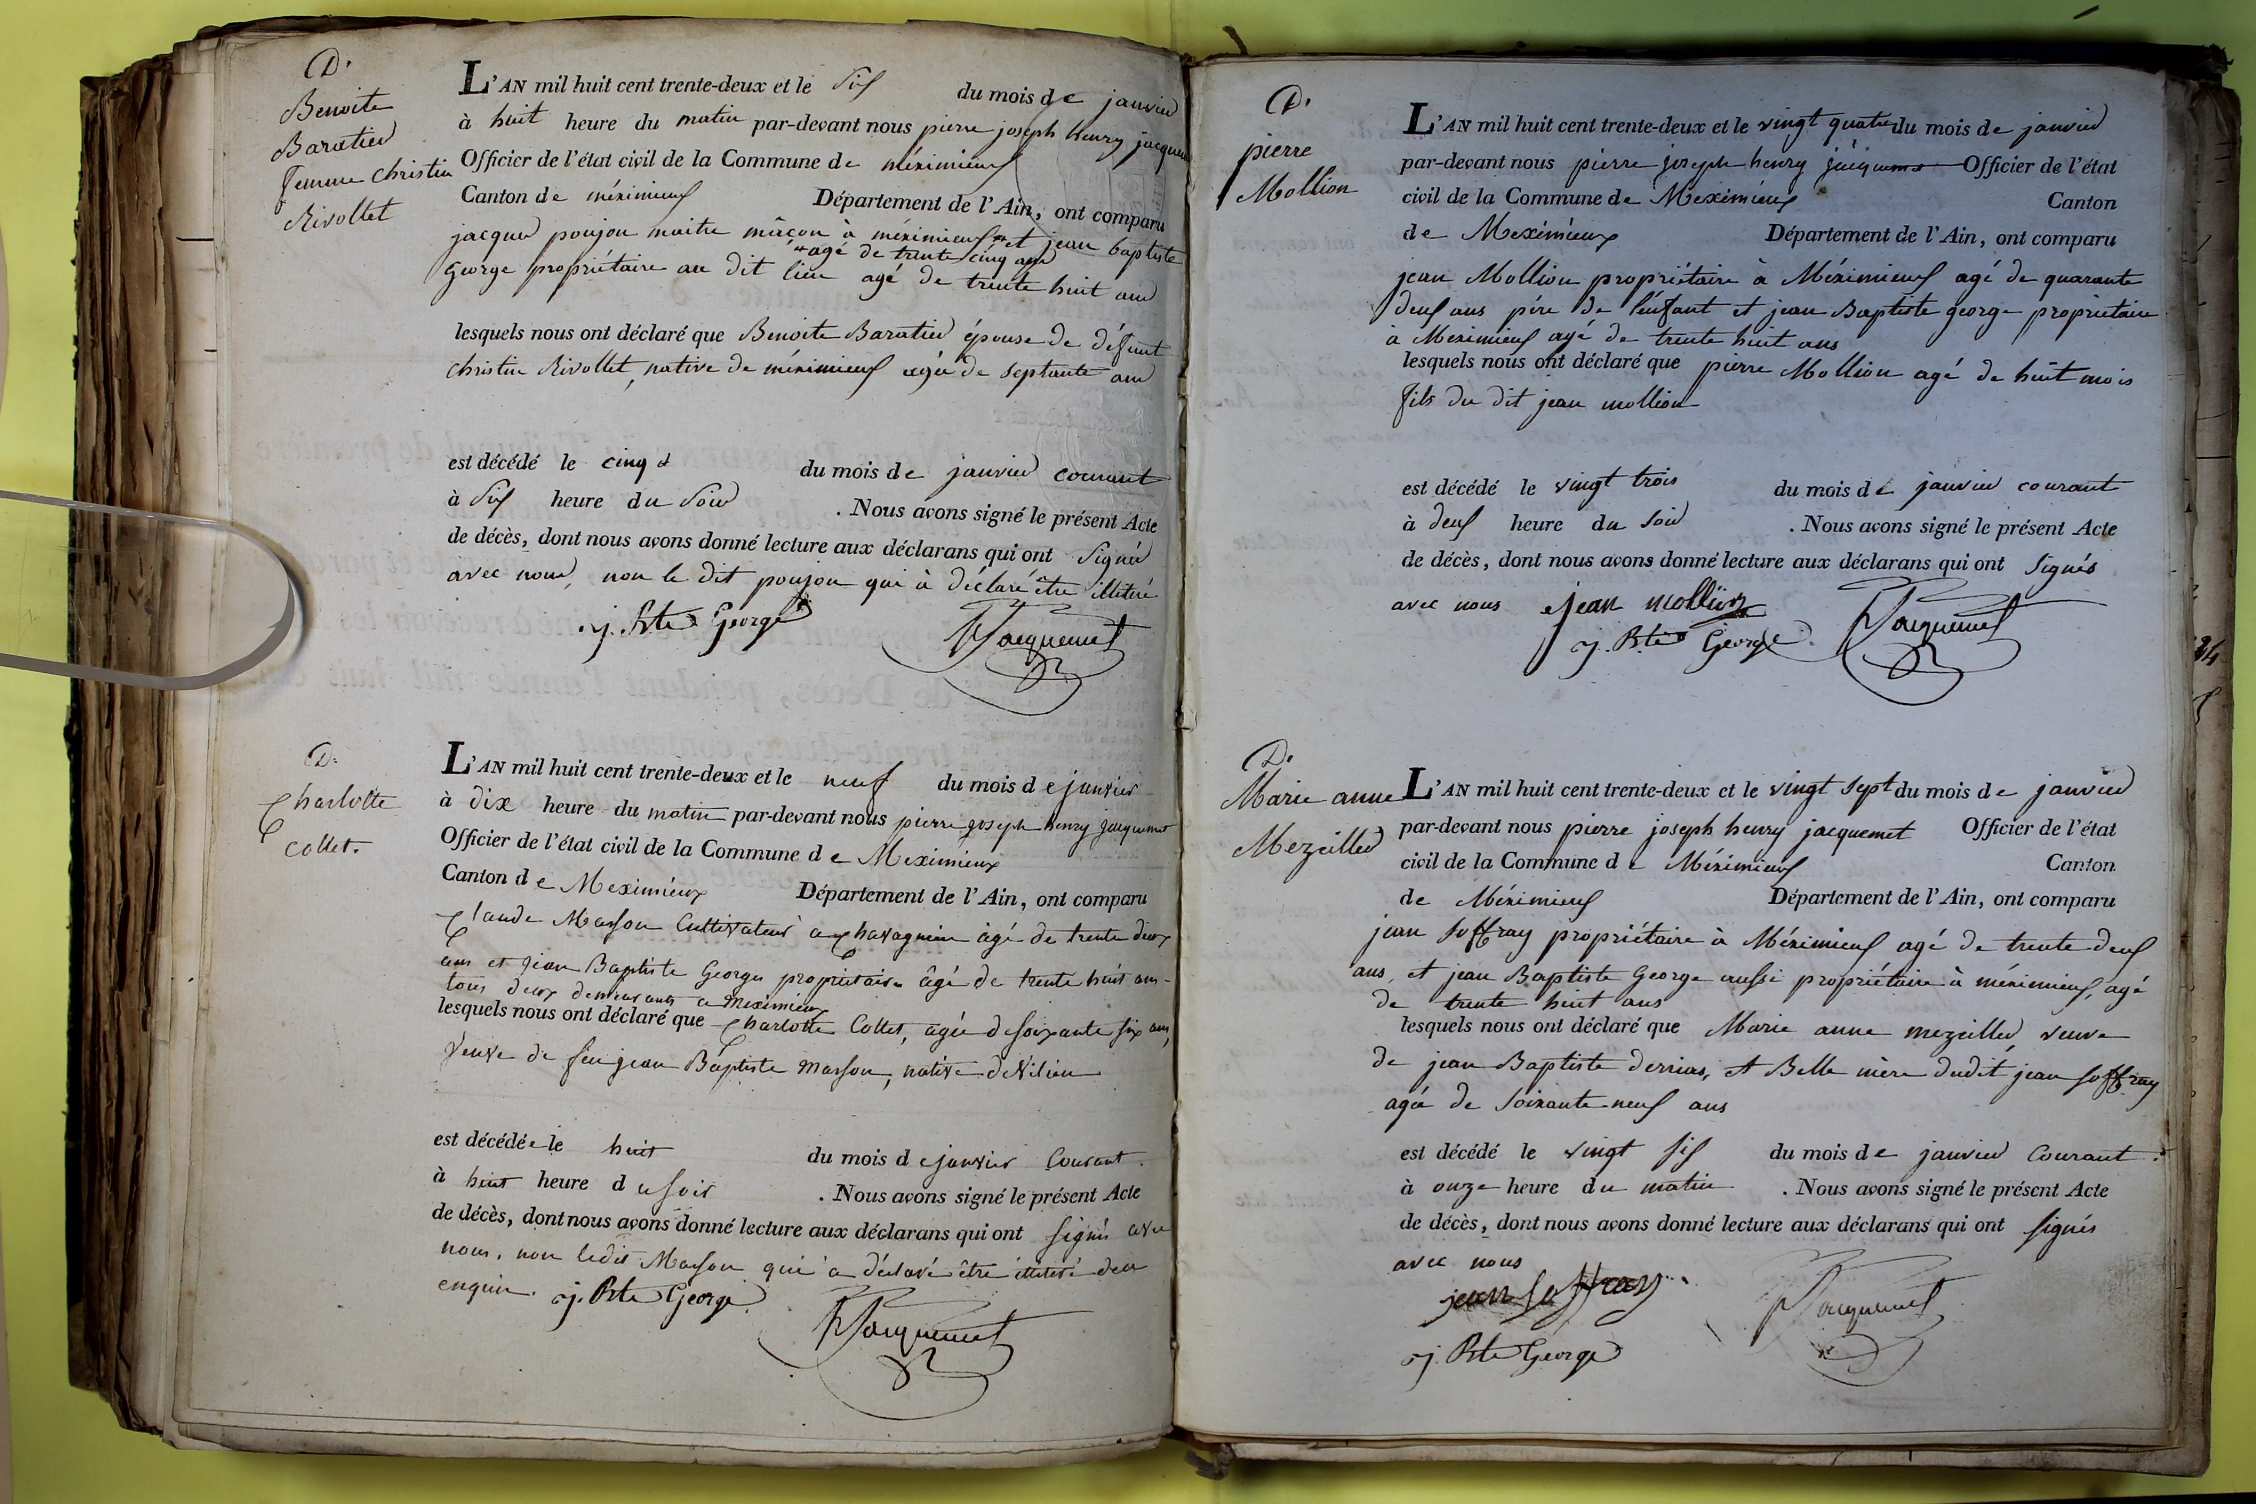 D.
Benoite
Baratier
femme christin
Rivollet
L'AN mil huit cent trente-deux et le six du mois de janvier
à huit heure du matin par-devant nous pierre joseph henry jacquemet
Officier de l'état civil de la Commune de méximieux
Canton de méximieux Département de l'Ain, ont comparu
jacques poujon maitre mâçon à méximieux et jean baptiste
agé de trente cinq ans
George propriétaire au dit lieu agé de trente huit ans
lesquels nous ont déclaré que Benoite Baratier épouse de défunt
christin Rivollet, native de méximieux agée de septante ans
est décédé le cinq du mois de janvier courant
à six heure du soir . Nous avons signé le présent Acte
de décès, dont nous avons donné lecture aux déclarans qui ont signé
avec nous, non le dit poujon qui à declaré être illitéré
j. Bte George Jacquemet
D.
Charlotte
Collet.
L'AN mil huit cent trente-deux et le neuf du mois de janvier
à dix heure du matin par-devant nous pierre joseph henry jacquemet
Officier de l'état civil de la Commune de Meximieux
Canton de Meximieux Département de l'Ain, ont comparu
Claude Masson Cultivateur a Chavagnieu âgé de trente deux
ans et jean Baptiste George propriétaire âgé de trente huit ans
tous deux demeurants a Meximieux
lesquels nous ont déclaré que Charlotte Collet, agée de soixante six ans,
veuve de feu jean Baptiste Masson, native de
est décédée le huit du mois de janvier Courant.
à huit heure du soir . Nous avons signé le présent Acte
de décès, dont nous avons donné lecture aux déclarans qui ont signés avec
nous, non ledit Masson qui a déclaré être illitéré de ce
enquis. j. Bte George Jacquemet
D.
pierre
Mollion
L'AN mil huit cent trente-deux et le vingt quatre du mois de janvier
par-devant nous pierre joseph henry jacquemet Officier de l'état
civil de la Commune de Meximieux Canton
de Meximieux Département de l'Ain, ont comparu
jean Mollion propriétaire à Méximieux agé de quarante
deux ans père de l'enfant et jean Baptiste george propriétaire
à Méximieux agé de trente huit ans
lesquels nous ont déclaré que pierre Mollion agé de huit mois
fils du dit jean mollion
est décédé le vingt trois du mois de janvier courant
à deux heure du soir . Nous avons signé le présent Acte
de décès, dont nous avons donné lecture aux déclarans qui ont signés
avec nous jean mollion
j. Bte George Jacquemet
D.
Marie anne
Mezeiller
L'AN mil huit cent trente-deux et le vingt sept du mois de janvier
par-devant nous pierre joseph henry jacquemet Officier de l'état
civil de la Commune de Méximieux Canton
de Méximieux Département de l'Ain, ont comparu
jean soffray propriétaire à Méximieux agé de trente deux
ans, et jean Baptiste George aussi propriétaire à méximieux, agé
de trente huit ans
lesquels nous ont déclaré que Marie anne mezeiller veuve
de jean Baptiste derrias, et Belle mère dudit jean soffray
agée de soixante neuf ans
est décédé le vingt six du mois de janvier Courant.
à onze heure du matin . Nous avons signé le présent Acte
de décès, dont nous avons donné lecture aux déclarans qui ont signés
avec nous
jean soffray Jacquemet
j. Bte George